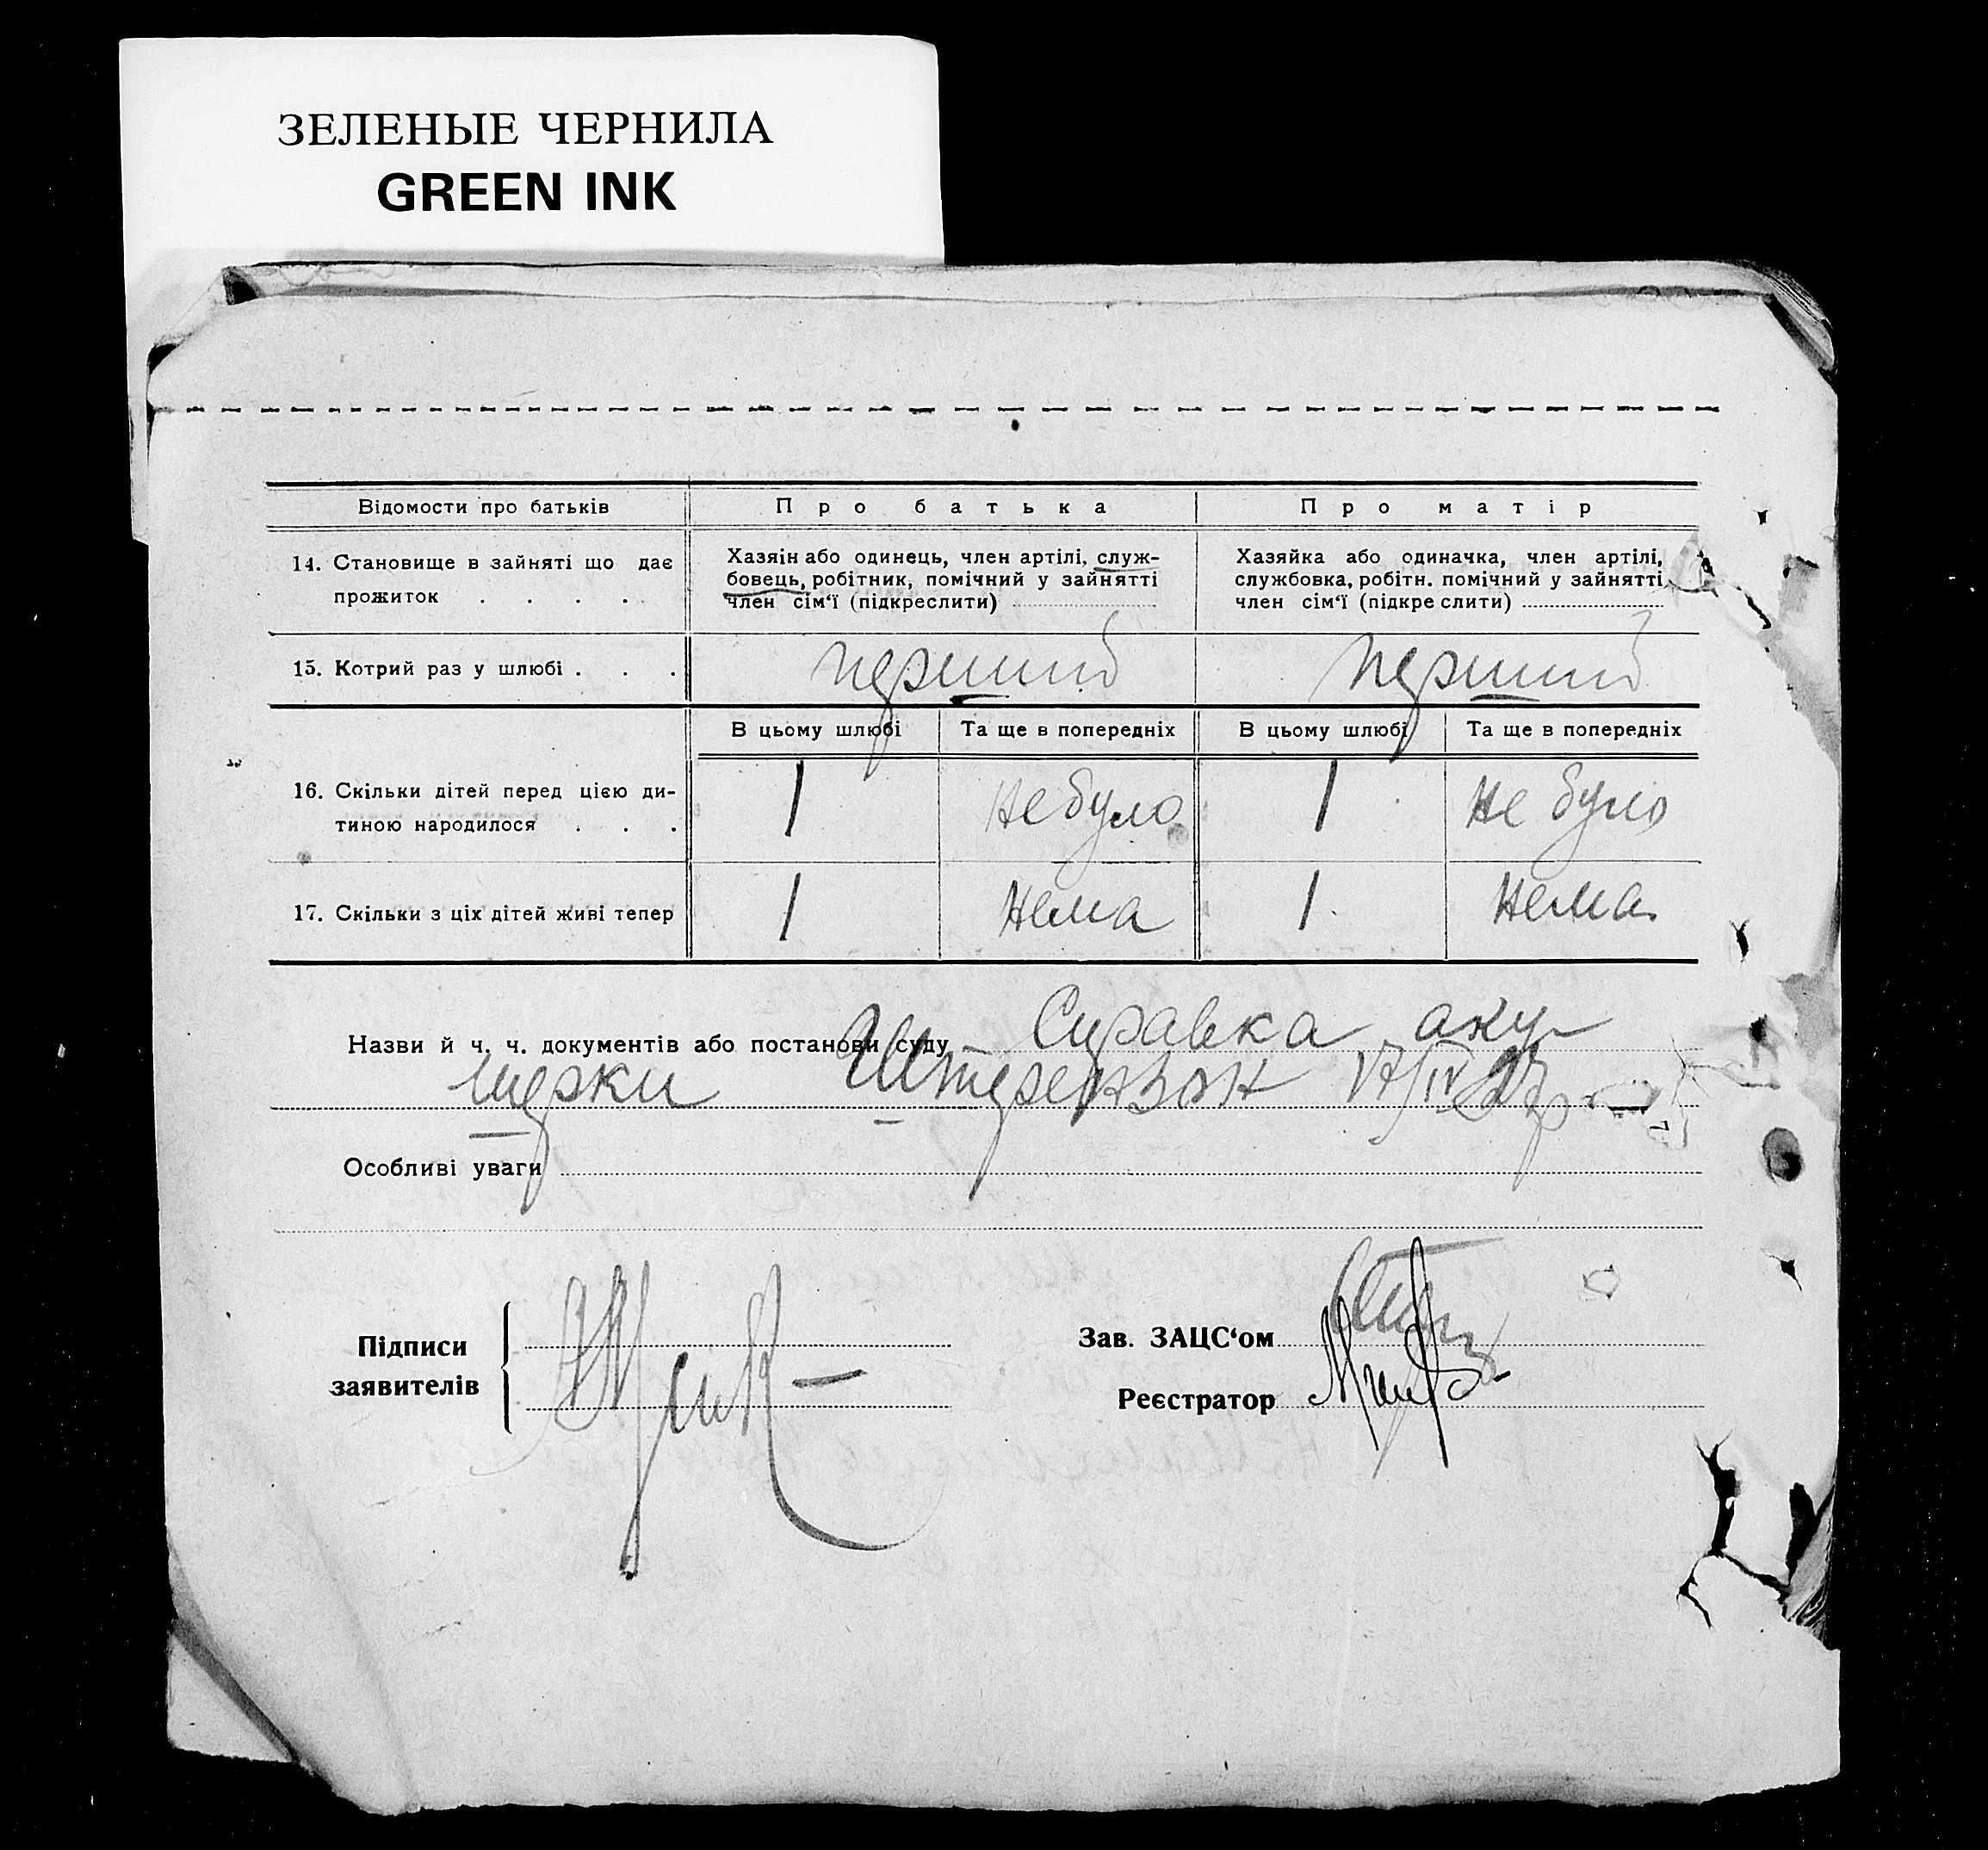 ЗЕЛЕНЫЕ ЧЕРНИЛА
GREEN INK
Відомости про батьків
Про батька
Про матір
14. Становище в зайняті що дає
прожиток . . . .
Хазяін або одинець, член артілі, служ-
бовець, робітник, помічний у зайнятті
член сім‘ї (підкреслити)
Хазяйка або одиначка, член артілі,
службовка, робітн. помічний у зайнятті
член сім‘ї (підкре слити)
15. Котрий раз у шлюбі . . .
перший
перший
В цьому шлюбі
Та ще в попередніх
В цьому шлюбі
Та ще в попередніх
16. Скільки дітей перед цією ди-
тиною народилося . . .
1
не було
1
не було
17. Скільки з ціх дітей живі тепер
1
нема
1
нема
Назви й ч. ч. документів або постанови суду Справка аку-
шерки 17/IV 27р
Особливі уваги
Підписи
заявителів
Зав. ЗАЦС‘ом
Реєстратор